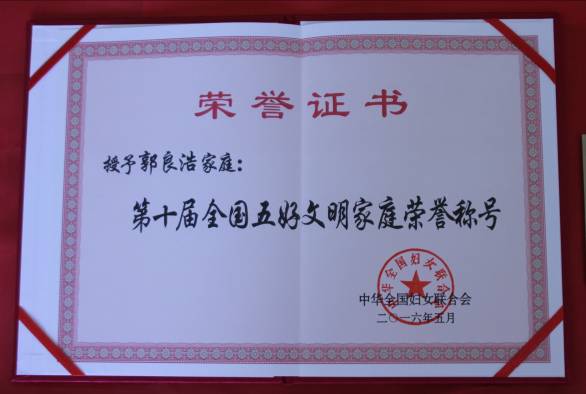 荣誉证书
授予郭良浩家庭：
第十届全国五好文明家庭荣誉称号
中华全国妇女联合会
中华全国妇女联合会
二〇一六年五月